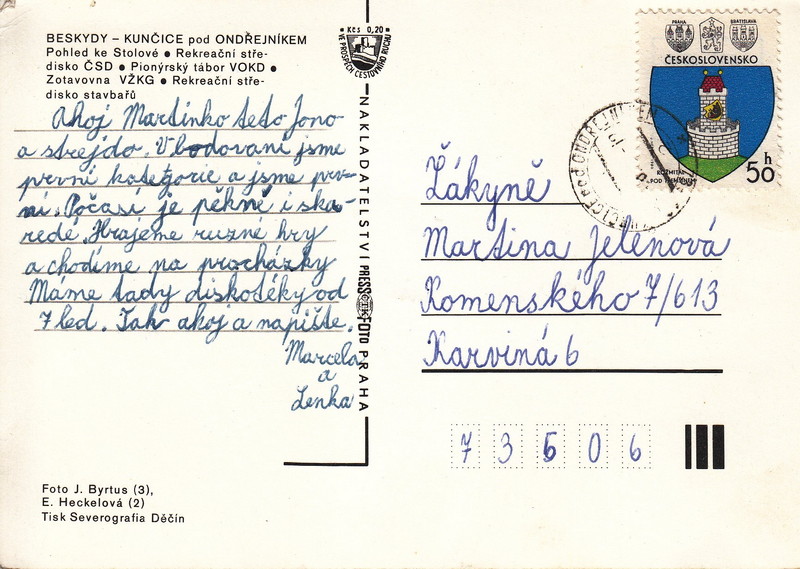 BESKYDY – KUNČICE pod ONDŘEJNÍKEM
Pohled ke Stolové • Rekreační stře-
disko ČSD • Pionýrský tábor VOKD •
Zotavovna VŽKG • Rekreační stře-
disko stavbařů
Ahoj Martinko teto Jano
a strejdo. V bodovaní jsme
první kategorie a jsme prv-
ní. Počasí je pěkné i ška-
redé. Hrajeme ruzné hry
a chodíme na procházky
Máme tady diskotéky od
7 led. Tak ahoj a napište.
Marcela
a
Lenka
Foto J. Byrtus (3),
E. Heckelová (2)
Tisk Severografia Děčín
Kčs 0,20
VE PROSPĚCH CESTOVNÍHO RUCHU
NAKLADATELSTVÍ PRESSFOTO PRAHA
PRAHA
BRATISLAVA
ČESKOSLOVENSKO
ROŽMITÁL
POD TŘEMŠÍNEM
50 h
Žákyně
Martina Jelenová
Komenského 7/613
Karviná 6
73506